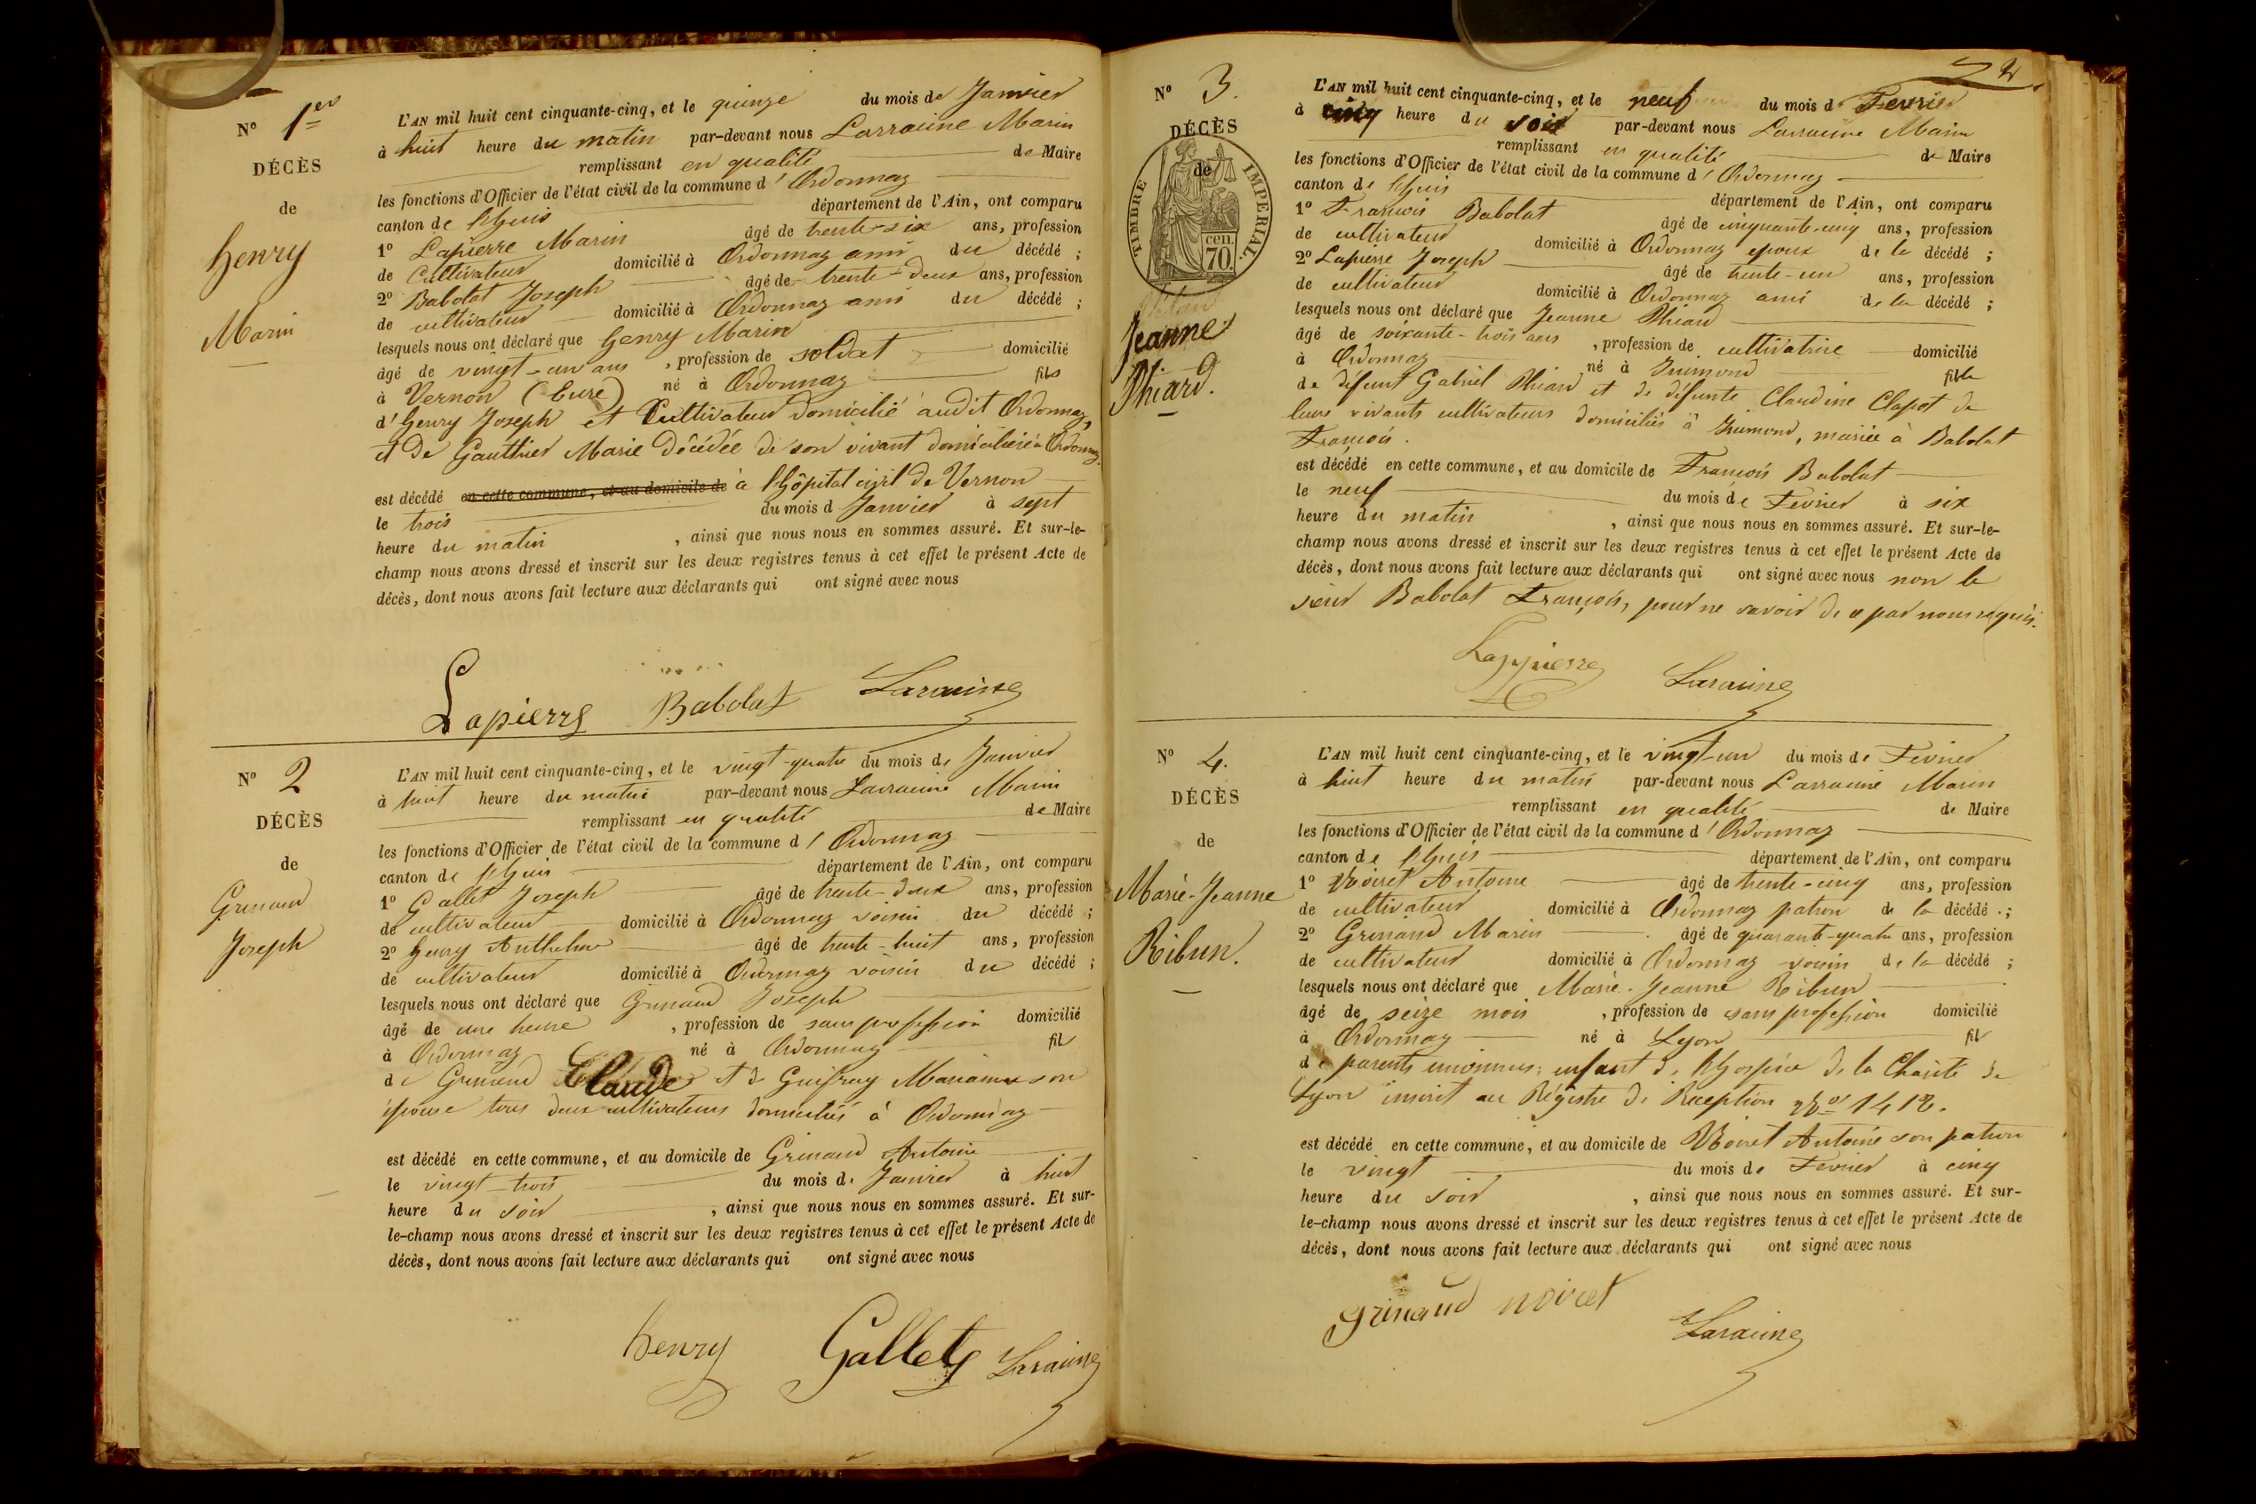 N° 1er
DÉCÈS
de
henry
Marin
L'AN mil huit cent cinquante-cinq, et le quinze du mois de Janvier
à huit heure du matin par-devant nous Larraine Marin
remplissant en qualité de Maire
les fonctions d'Officier de l'état civil de la commune d'Ordonnaz
canton de lhuis département de l'Ain, ont comparu
1° Lapierre Marin âgé de trente-six ans, profession
de Cultivateur domicilié à Ordonnaz ami du décédé ;
2° Babolat Joseph âgé de trente-deux ans, profession
de cultivateur domicilié à Ordonnaz ami du décédé ;
lesquels nous ont déclaré que henry Marin
âgé de vingt-un ans , profession de soldat domicilié
à Vernon (Eure) né à Ordonnaz fils
d'henry Joseph et Cultivateur domicilié audit Ordonnaz,
et de Gauthier Marie décédée de son vivant domiciliée à Ordonnaz.
est décédé en cette commune, et au domicile de à l'hôpital civil de Vernon
le trois du mois d Janvier à sept
heure du matin , ainsi que nous nous en sommes assuré. Et sur-le-
champ nous avons dressé et inscrit sur les deux registres tenus à cet effet le présent Acte de
décès, dont nous avons fait lecture aux déclarants qui ont signé avec nous
Lapierre Babolat Laraine
N° 2
DÉCÈS
de
Grinand
Joseph
L'AN mil huit cent cinquante-cinq, et le vingt-quatre du mois de Janvier
à huit heure du matin par-devant nous Larraine Marin
remplissant en qualité de Maire
les fonctions d'Officier de l'état civil de la commune d'Ordonnaz
canton de lhuis département de l'Ain, ont comparu
1° Gallet Joseph âgé de trente-deux ans, profession
de cultivateur domicilié à Ordonnaz voisin du décédé ;
2° henry Anthelme âgé de trente-huit ans, profession
de cultivateur domicilié à Ordonnaz voisin du décédé ;
lesquels nous ont déclaré que Grinand Joseph
âgé de une heure , profession de sans profession domicilié
à Ordonnaz né à Ordonnaz fil
de Grinand Claude et de Guifray Marianne son
épouse tous deux cultivateurs domiciliés à Ordonnaz
est décédé en cette commune, et au domicile de Grinand Antoine
le vingt-trois du mois de Janvier à huit
heure du soir , ainsi que nous nous en sommes assuré. Et sur-
le-champ nous avons dressé et inscrit sur les deux registres tenus à cet effet le présent Acte de
décès, dont nous avons fait lecture aux déclarants qui ont signé avec nous
henry Gallet Laraine
N° 3.
DÉCÈS
de
TIMBRE IMPERIAL.
cen.
70.
Jeanne
Phiard.
L'AN mil huit cent cinquante-cinq, et le neuf du mois d Fevrier
à cinq heure du soir par-devant nous Larraine Marin
remplissant en qualité de Maire
les fonctions d'Officier de l'état civil de la commune d'Ordonnaz
canton de lhuis département de l'Ain, ont comparu
1° François Babolat âgé de cinquante-cinq ans, profession
de cultivateur domicilié à Ordonnaz epoux de la décédé ;
2° Lapierre Joseph âgé de trente-un ans, profession
de cultivateur domicilié à Ordonnaz ami de la décédé ;
lesquels nous ont déclaré que Jeanne Phiard
âgé de soixante-trois ans , profession de cultivatrice domicilié
à Ordonnaz né à Inimond fille
de défunt Gabriel Phiard et de défunte Claudine Clapot de
leurs vivants cultivateurs domiciliés à Inimond, mariée à Babolat
François.
est décédé en cette commune, et au domicile de François Babolat
le neuf du mois de Fevrier à six
heure du matin , ainsi que nous nous en sommes assuré. Et sur-le-
champ nous avons dressé et inscrit sur les deux registres tenus à cet effet le présent Acte de
décès, dont nous avons fait lecture aux déclarants qui ont signé avec nous non le
sieur Babolat François, pour ne savoir de ce par nous requis.
Lappierre Laraine
N° 4.
DÉCÈS
de
Marie-Jeanne
Ribun.
L'AN mil huit cent cinquante-cinq, et le vingt-un du mois de Fevrier
à huit heure du matin par-devant nous Larraine Marin
remplissant en qualité de Maire
les fonctions d'Officier de l'état civil de la commune d'Ordonnaz
canton de lhuis département de l'Ain, ont comparu
1° Noiret Antoine âgé de trente-cinq ans, profession
de cultivateur domicilié à Ordonnaz patron de la décédé ;
2° Grinand Marin âgé de quarante-quatre ans, profession
de cultivateur domicilié à Ordonnaz voisin de la décédé ;
lesquels nous ont déclaré que Marie-Jeanne Ribun
âgé de seize mois , profession de sans profession domicilié
à Ordonnaz né à Lyon fil
de parents inconnus; enfant de l'hospice de la Charité de
Lyon inscrit au Régistre de Réception N° 1412.
est décédé en cette commune, et au domicile de Noiret Antoine son patron
le vingt du mois de Fevrier à cinq
heure du soir , ainsi que nous nous en sommes assuré. Et sur-
le-champ nous avons dressé et inscrit sur les deux registres tenus à cet effet le présent Acte de
décès, dont nous avons fait lecture aux déclarants qui ont signé avec nous
grinand noiret Laraine